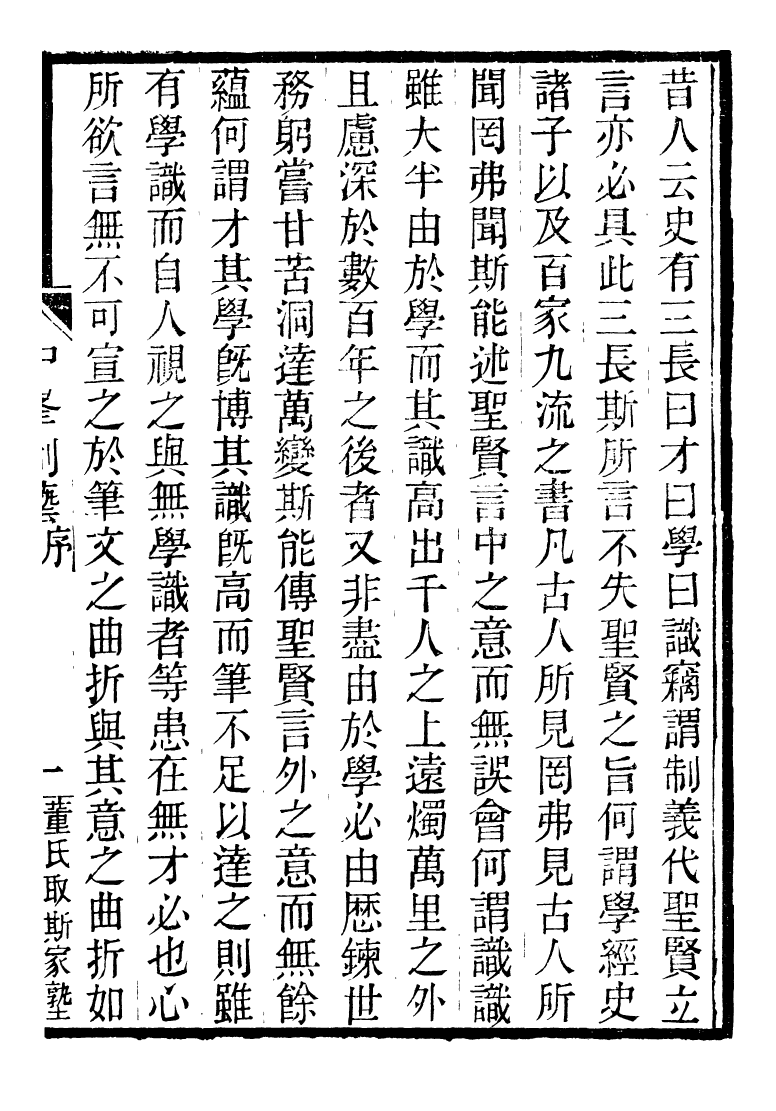 昔人云史有三長曰才曰學曰識竊謂制義代聖賢立
言亦必具此三長斯所言不失聖賢之旨何謂學經史
諸子以及百家九流之書凡古人所見罔弗見古人所
聞罔弗聞斯能述聖賢言中之意而無誤會何謂識識
雖大半由於學而其識高出千人之上遠燭萬里之外
且慮深於數百年之後者又非盡由於學必由歷鍊世
務躬嘗甘苦洞達萬變斯能傳聖賢言外之意而無餘
蘊何謂才其學旣博其識旣高而筆不足以達之則雖
有學識而自人視之與無學識者等患在無才必也心
所欲言無不可宣之於筆文之曲折與其意之曲折如
中峯制藝序
一
董氏取斯家塾